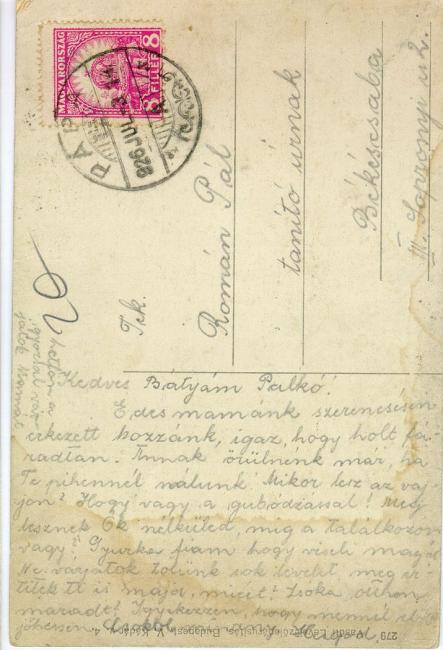 MAGYARORSZÁG
8 FILLÉR 8
PÁPA
926 JUL.
Tek.
Román Pál
tanító úrnak
Békéscsaba
III. Soproni u 2.
Kedves Bátyám Palkó!
Édes mamánk szerencsésen
érkezett hozzánk, igaz, hogy holt fá-
radtan. Annak örülnénk már, ha
Te pihennél nálunk. Mikor lesz az vaj
jon? Hogy vagy a gubódzással? Meg
lesznek Ők nélküled, míg a találkozon
vagy? Gyurka fiam hogy viseli magát
Ne várjatok tőlünk sok levelet, meg ír
titek ti is majd, miért? otthon
maradt! Igyekezzen, hogy mennél
jöhessen. Csókol
279
Budapest, V.